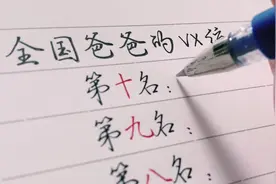 全国爸爸的VX位
第十名：
第九名：
第八名：